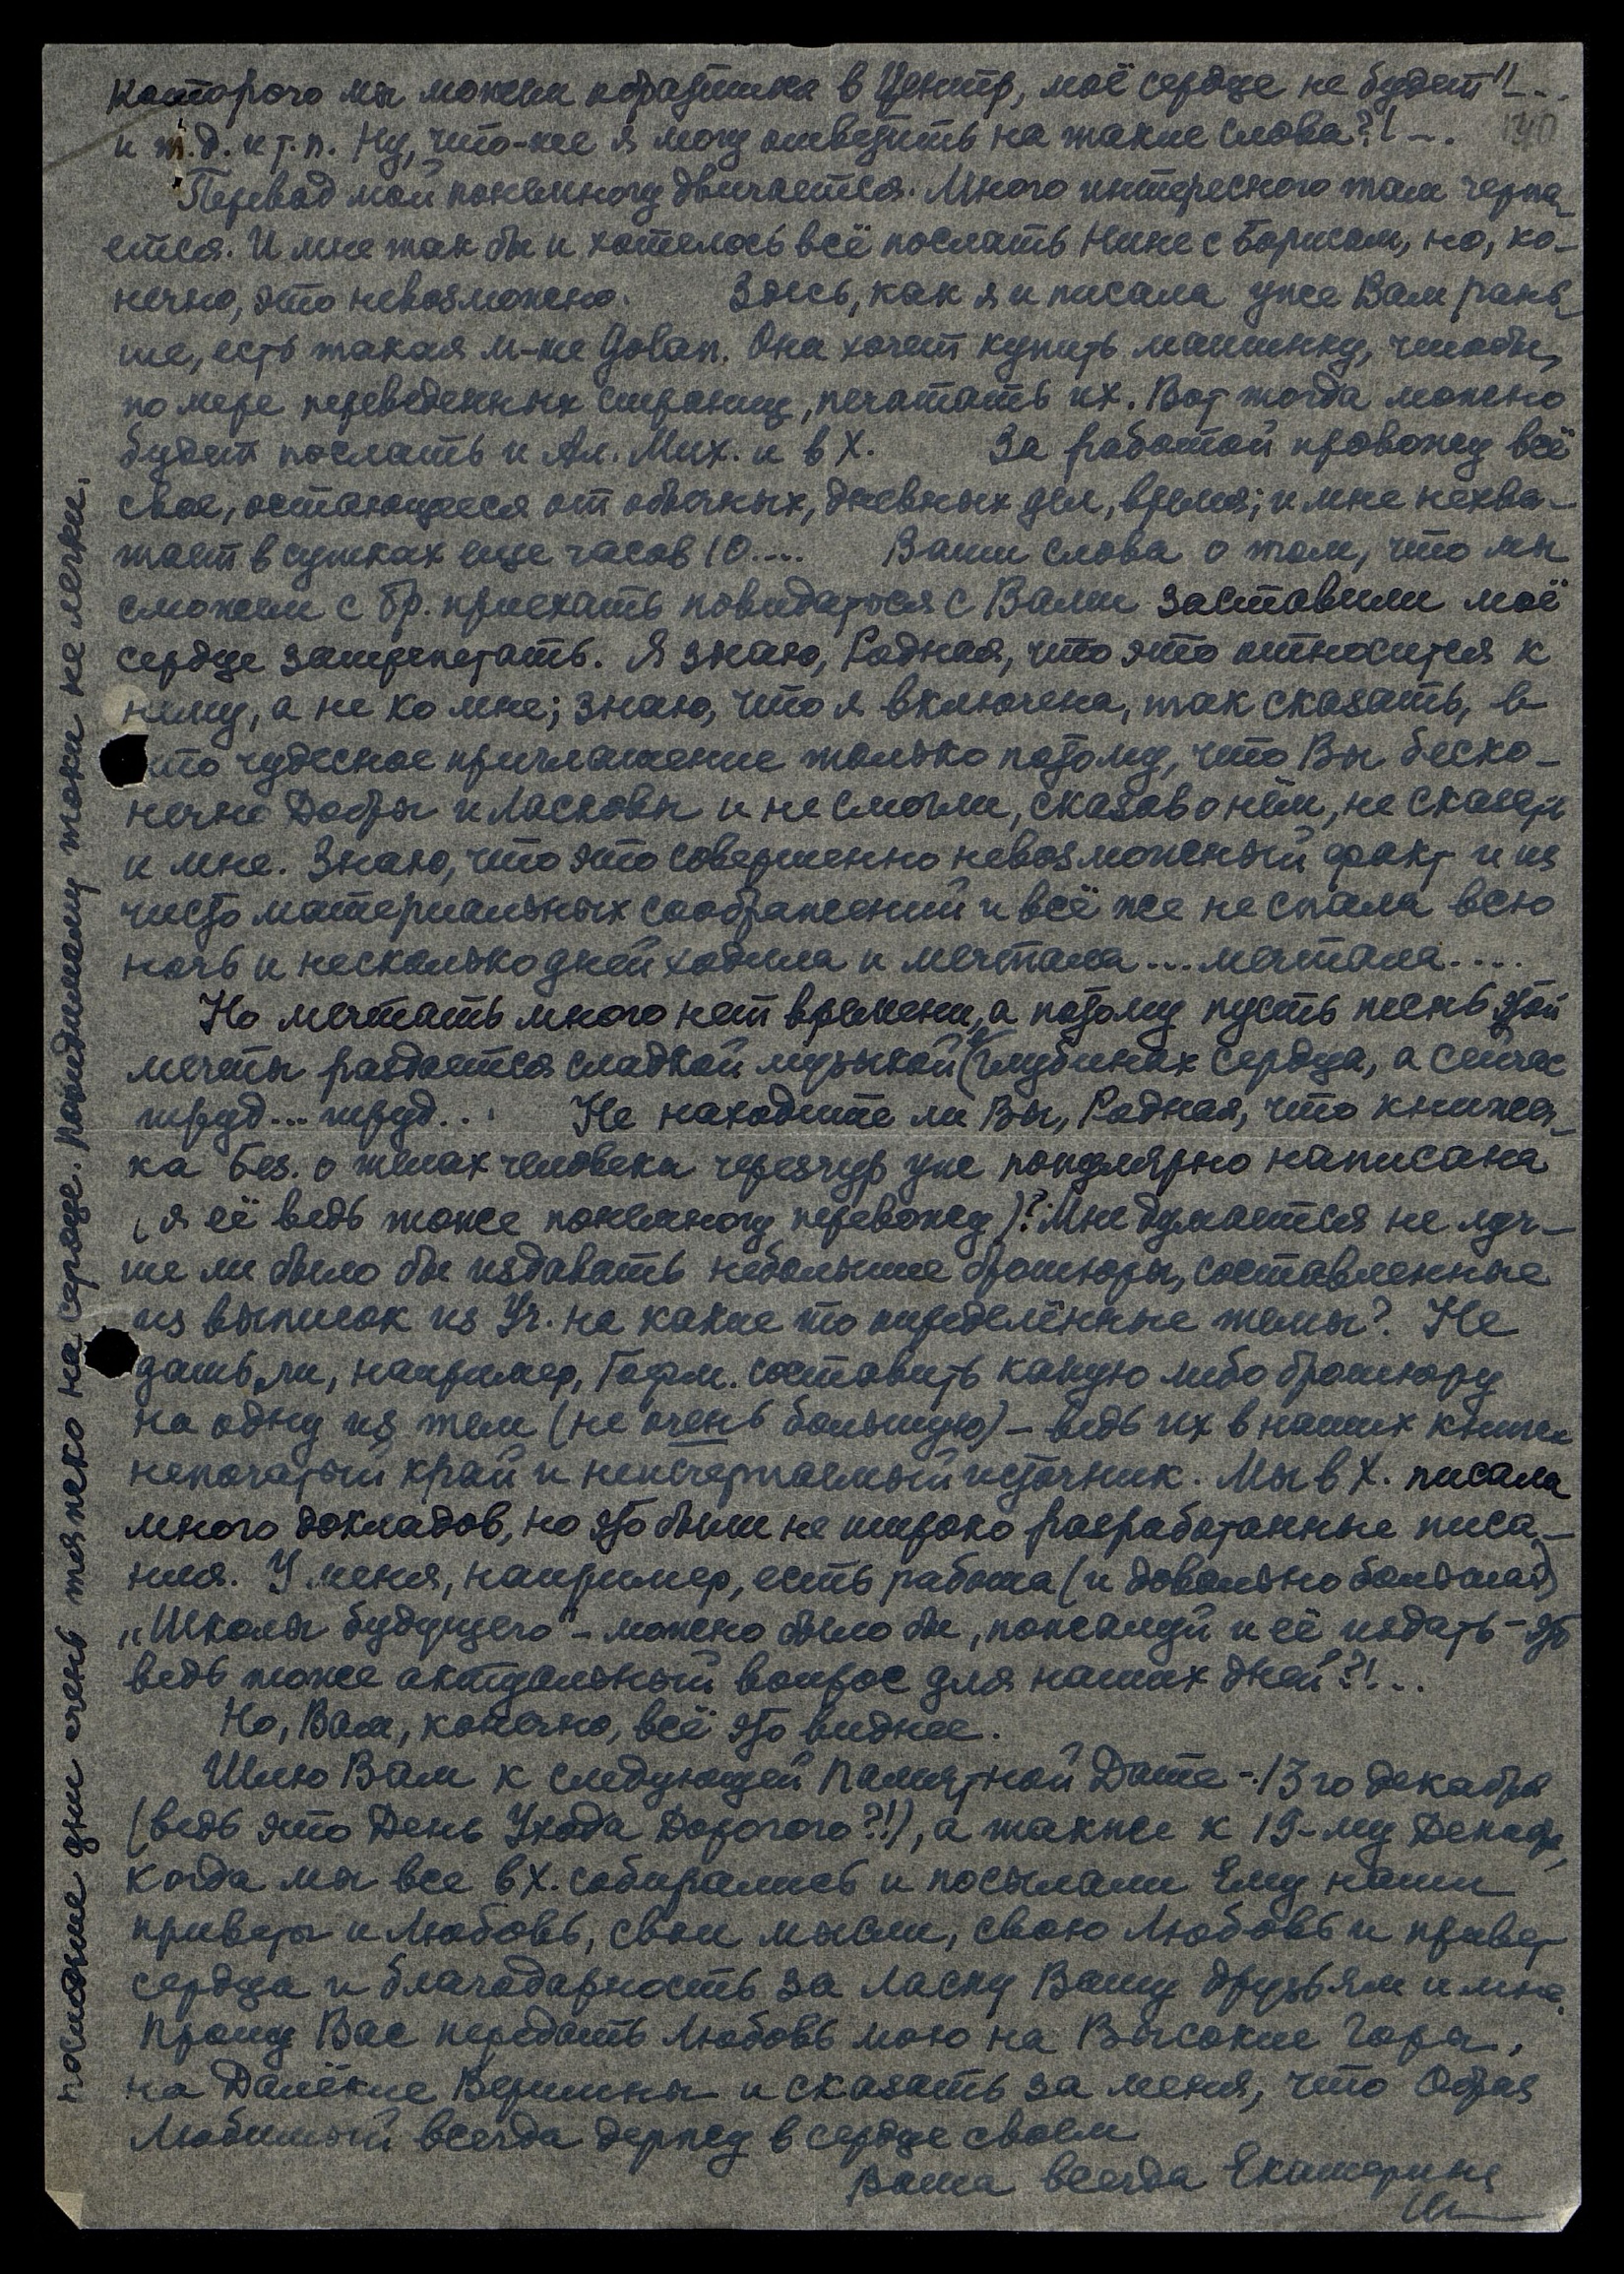 которого мы можем обратиться в Центр, моё сердце не будет"!...
и т.д. и т.п. Ну, что-же я могу ответить на такие слова?!–.
140
Перевод мой понемногу двигается. Много интересного там черпа-
ется. И мне так бы и хотелось всё послать Нине с Борисом, но, ко-
нечно, это невозможно. Здесь, как я и писала уже Вам рань-
ше, есть такая м-ме Golan. Она хочет купить машинку, чтобы,
по мере переведенных страниц, печатать их. Вот тогда можно
будет послать и Ал. Мих. и в Х. За работой провожу всё
свое, остающееся от обычных, дневных дел, время; и мне нехва-
тает в сутках еще часов 10.... Ваши слова о том, что мы
сможем с бр. приехать повидаться с Вами заставили моё
сердце затрепетать. Я знаю, Родная, что это относится к
нему, а не ко мне; знаю, что я включена, так сказать, в
это чудесное приглашение только потому, что Вы беско-
нечно Добры и Ласковы и не смогли, сказав о нём, не сказать
и мне. Знаю, что это совершенно невозможный факт и из
чисто материальных соображений и всё же не спала всю
ночь и несколько дней ходила и мечтала...мечтала....
Но мечтать много нет времени, а потому пусть песнь этой
мечты раздается сладкой музыкой в глубинах сердца, а сейчас
труд...труд... Не находите ли Вы, Родная, что книжеч-
ка Без. о телах человека черезчур уже популярно написана
(я её ведь тоже понемногу перевожу)? Мне думается не луч-
ше ли было бы издавать небольшие брошюры, составленные
из выписок из Уч. на какие то определённые темы? Не
дать ли, например, Гофм. составить какую либо брошюру
на одну из тем (не очень большую) – ведь их в наших книгах
непочатый край и неисчерпаемый источник. Мы в Х. писали
много докладов, но это были не широко разработанные писа-
ния. У меня, например, есть работа (и довольно большая)
„Школы будущего" – можно было бы, пожалуй и её издать – это
ведь тоже актуальный вопрос для наших дней?!...
Но, Вам, конечно, всё это виднее.
Шлю Вам к следующей Памятной Дате – 13го декабря
(ведь это День Ухода Дорогого?!), а также к 19-му Декабр,
когда мы все в Х. собирались и посылали Ему наши
приветы и Любовь, свои мысли, свою Любовь и привет
сердца и благодарность за ласку Вашу друзьям и мне.
Прошу Вас передать Любовь мою на Высокие Горы,
на Далёкие Вершины и сказать за меня, что Образ
Любимый всегда держу в сердце своем
Ваша всегда Екатерина
последние дни очень тяжело на сердце. Повидимому токи не легки.